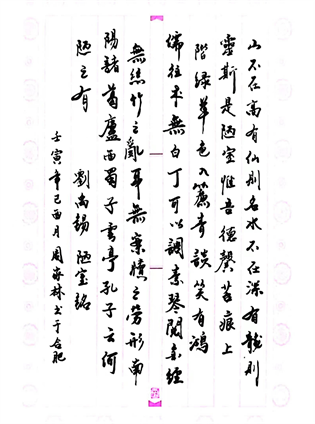 山不在高有仙則名水不在深有龍則
靈斯是陋室惟吾德馨苔痕上
階綠草色入簾青談笑有鴻
儒往来無白丁可以調素琴閱金經
無絲竹之亂耳無案牘之勞形南
陽諸葛廬西蜀子雲亭孔子云何
陋之有 劉禹錫 陋室銘
壬寅年己酉月周海林书于合肥